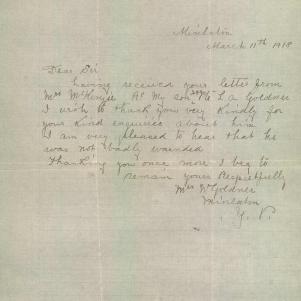 Minlaton
March 11th 1918
Dear Sir
having received your letter from
Mrs McKenzie Re My son Pte L A Goldner
I wish to thank you very kindly for
your kind enquiries about him
I am very pleased to hear that he
was not badly wounded
thanking you once more I beg to
remain yours Respectfully
Mrs Goldner
Minlaton
Y. P.